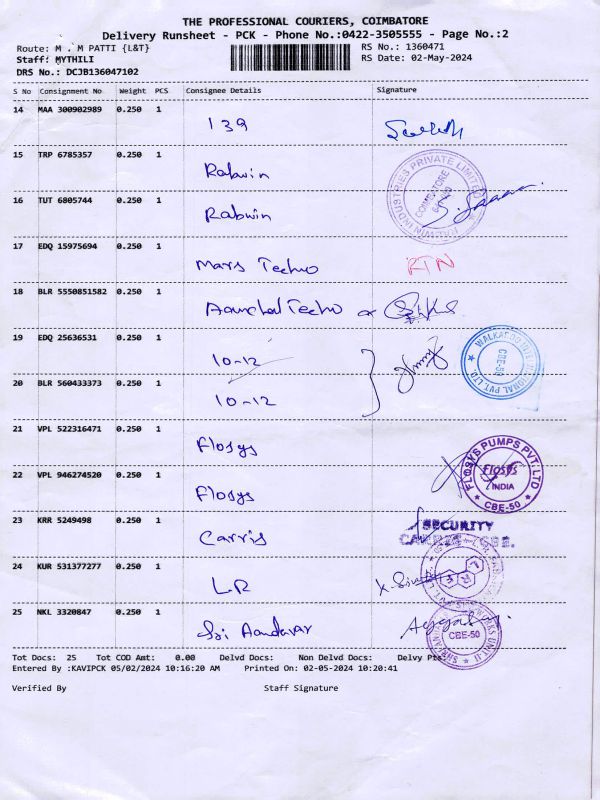 THE PROFESSIONAL COURIERS, COIMBATORE
Delivery Runsheet - PCK - Phone No.:0422-3505555 - Page No.:2
Route: M . M PATTI {L&T}
RS No.: 1360471
Staff: MYTHILI
RS Date: 02-May-2024
DRS No.: DCJB136047102
S No Consignment No Weight PCS Consignee Details Signature
14 MAA 300902989 0.250 1 139
15 TRP 6785357 0.250 1 Rabwin
16 TUT 6805744 0.250 1 Rabwin
17 EDQ 15975694 0.250 1 Mars Techno RTN
18 BLR 5550851582 0.250 1 Techno
19 EDQ 25636531 10-12
20 BLR 560433373 0.250 1 10-12
CBE-50
21 VPL 522316471 0.250 1 Flosys
FLOSYS PUMPS PVT. LTD
Flosys
INDIA
CBE-50
22 VPL 946274520 0.250 1 Flosys
23 KRR 5249498 0.250 1 Carris
SECURITY
24 KUR 531377277 0.250 1 LR
25 NKL 3320847 0.250 1 Sri Aandavar
CBE-50
Tot Docs: 25 Tot COD Amt: 0.00 Delvd Docs: Non Delvd Docs: Delvy
Entered By :KAVIPCK 05/02/2024 10:16:20 AM Printed On: 02-05-2024 10:20:41
Verified By Staff Signature